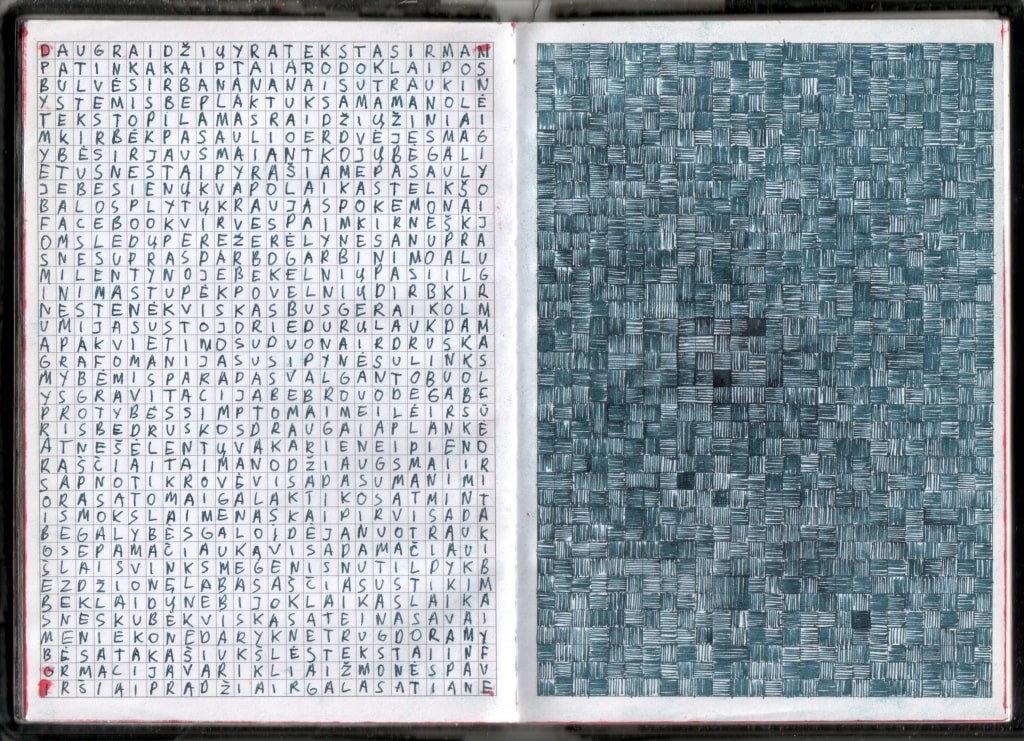 DAUGRAIDŽIŲYRATEKSTASIRMAN
PATINKAKAIPTAIARODOKLAIDOS
BULVĖSIRBANANANAISUTRAUKIN
YSTEMISBEPLAKTUKSAMAMANOLĖ
TEKSTOPILAMASRAIDŽIŲŽINIAI
MKIRBĖKPASAULIOERDVĖJESMAG
YBĖSIRJAVSMAIANTKOJŲBEGALI
ETUSNESTAIPYRAŠIAMEPASAULY
JEBESIENŲKVAPOLAIKASTELKŠO
BALOSPLYTŲKRAUJASPOKEMONAI
FACEBOOKVIRVESPAIMKIRNEŠKJ
OMSLEDŲPEREŽERĖLYNESANUPRA
SNESUPRASDARBOGARBINIMOALU
MILENTYNOJEBEKELNIŲPASIILG
INIMASTUPĖKPOVELNIŲDIRBKIR
NESTENĖKVISKASBUSGERAIKOLM
UMIJASUSTOJORIEDURULAUKDAM
APAKVIETINOSUDUONAIRDRUSKA
GRAFOMANIJASUSIPYNĖSULINKS
MYBĖMISPARADASVALGANTOBUOL
YSGRAVITACIJABEBROUODEGABE
PROTYBĖSSIMPTOMAIMEILĖIRSŪ
RISBEDRUSKOSDRAUGAIAPLANKĖ
ATNEŠĖLENTŲVAKARIENEIPIENO
RAŠČIAITAIMANODŽIAUGSMAIIR
SAPNOTIKROVĖVISADASUMANIMI
ORASATOMAIGALAKTIKOSATMINT
ISMOKSLAIMENASKAIPIRVISADA
BEGALYBĖSGALOIDĖJANUOTRAUK
OSEPAMAČIAUKĄVISADAMAČIAUI
ŠLAISVINKSMEGENISNUTILDYKB
EZDŽIONĘLABASAŠČIASUSTIKIM
BEKLAIDŲNEBIJOKLAIKASLAIKA
SNESKUBĖKVISKASATEINASAVAI
MENIEKONEDARYKNETRUGDORAMY
BĖSATAKAŠIUKŠLĖSTEKSTAIINF
ORMACIJAVARIKLIAIŽMONĖSPAV
IRŠIAIPRADŽIAIRGALASATIANE